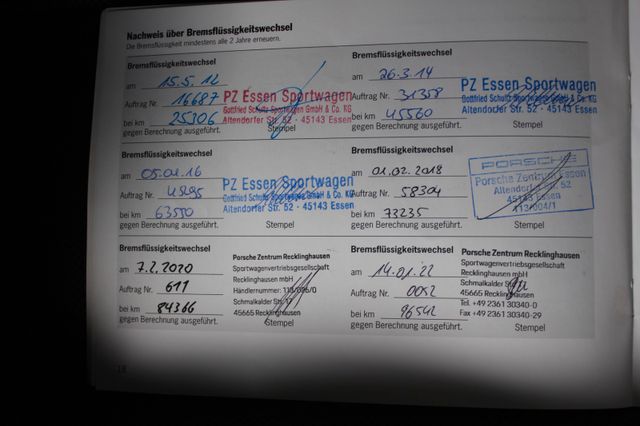 Nachweis über Bremsflüssigkeitswechsel
Die Bremsflüssigkeit mindestens alle 2 Jahre erneuern.
Bremsflüssigkeitswechsel
am 15.5.12
Auftrag Nr. 16687
bei km 25306
gegen Berechnung ausgeführt. Stempel
PZ Essen Sportwagen
Gottfried Schultz Sportwagen GmbH & Co. KG
Altendorfer Str. 52 · 45143 Essen
Bremsflüssigkeitswechsel
am 26.3.14
Auftrag Nr. 31358
bei km 45560
gegen Berechnung ausgeführt. Stempel
PZ Essen Sportwagen
Gottfried Schultz Sportwagen GmbH & Co. KG
Altendorfer Str. 52 · 45143 Essen
Bremsflüssigkeitswechsel
am 05.01.16
Auftrag Nr.
bei km 63550
gegen Berechnung ausgeführt. Stempel
PZ Essen Sportwagen
Gottfried Schultz Sportwagen GmbH & Co. KG
Altendorfer Str. 52 · 45143 Essen
Bremsflüssigkeitswechsel
am 01.02.2018
Auftrag Nr. 58304
bei km 73235
gegen Berechnung ausgeführt. Stempel
PORSCHE
Porsche Zentrum Essen
Altendorfer Str. 52
45143 Essen
113/004/1
Bremsflüssigkeitswechsel
am 7.2.2020
Auftrag Nr. 611
bei km 84366
gegen Berechnung ausgeführt. Stempel
Porsche Zentrum Recklinghausen
Sportwagenvertriebsgesellschaft
Recklinghausen mbH
Händlernummer:
Schmalkalder Str. 17
45665 Recklinghausen
Bremsflüssigkeitswechsel
am 14.01.22
Auftrag Nr. 0052
bei km 96542
gegen Berechnung ausgeführt. Stempel
Porsche Zentrum Recklinghausen
Sportwagenvertriebsgesellschaft
Recklinghausen mbH
Schmalkalder
45665 Recklinghausen
Tel. +49 2361 30340-0
Fax +49 2361 30340-29